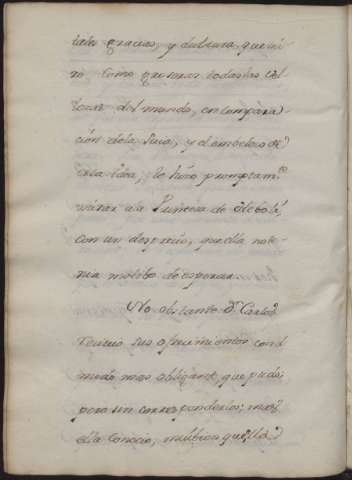 tales gracias, y dulzura, que mi
ró como groseras todas las bel
lezas del mundo, en compara
ción dela suia, y el embeleso de
esta Idea, le hizo promptam.te
mirar ala Princesa de Eboli,
con un desprecio, que ella note
nia motibo de esperar.
No obstante Dn Carlos
recivió sus ofrecimientos con el
modo mas obligante, que pudo;
pero sin corresponderlos; mas
ella conoció, mui bien que, ella